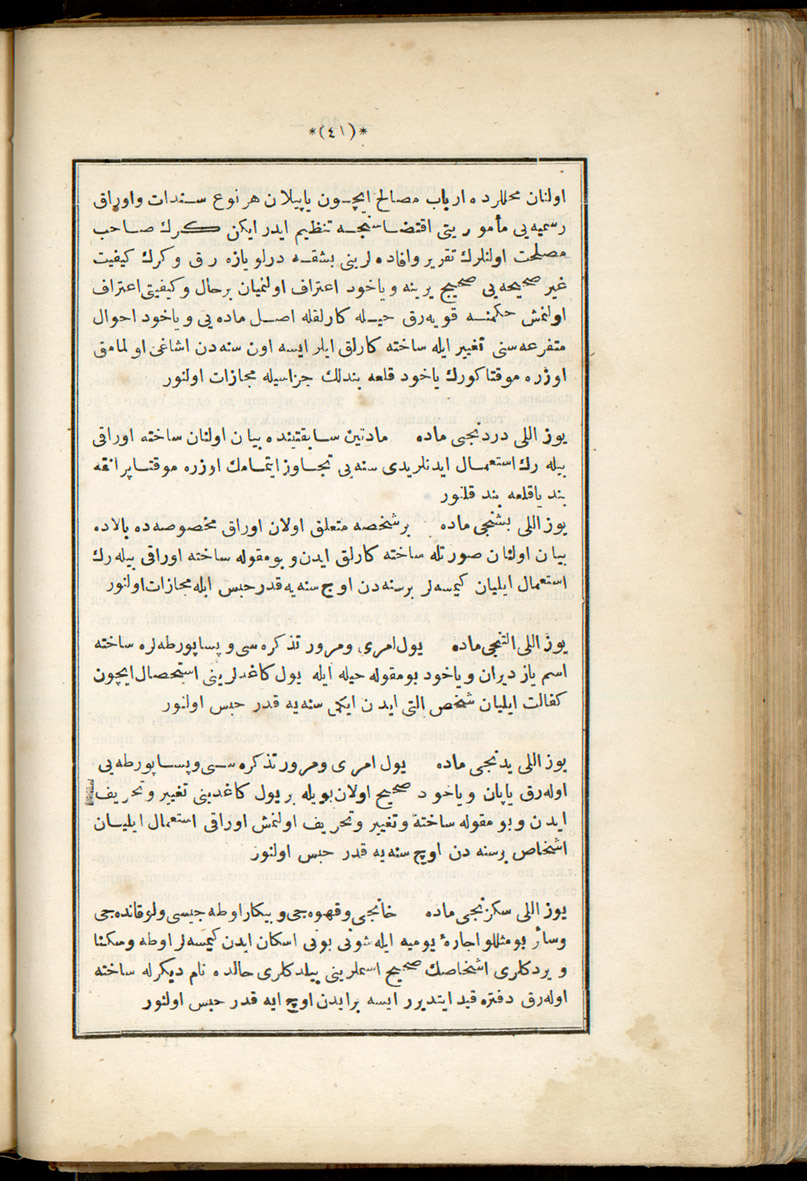 *(٤١)*
اولنان محللرده ارباب مصالح ایچون یاپیلان هر نوع سندات و اوراق
رسمیه‌یی مأموریتی اقتضاسنجه تنظیم ایدر ایکن کرك صاحب
مصلحت اولنلرك تقریر و افاده لرینی بشقه درلو یازه رق و کرك کیفیت
غیر صحیحه‌یی صحیح یرینه و یاخود اعتراف اولنمیان برحال و کیفیتی اعتراف
اولنمش حکمنه قویه‌رق حیله کارلقله اصل ماده‌یی و یاخود احوال
متفرعه سنی تغییر ایله ساخته کارلق ایلر ایسه اون سنه دن اشاغی اولمامق
اوزره موقتا کورك یاخود قلعه بندلك جزاسیله مجازات اولنور
یوز اللی دردنجی ماده مادتین سابقتینده بیان اولنان ساخته اوراقی
بیله رك استعمال ایدنلریدی سنه‌یی تجاوز ایتمامك اوزره موقتا پرانقه
بند یاقلعه بند قلنور
یوز اللی بشنجی ماده برشخصه متعلق اولان اوراق مخصوصه ده بالاده
بیان اولنان صورتله ساخته کارلق ایدن و بومقوله ساخته اوراقی بیله رك
استعمال ایلیان کیمسه لر برسنه دن اوچ سنه‌یه قدر حبس ایله مجازات اولنور
یوز اللی التنجی ماده یول امری و مرور تذکره سی و پساپورطه لره ساخته
اسم یازدیران و یاخود بومقوله حیله ایله یول کاغدلرینی استحصال ایچون
کفالت ایلیان شخص التی ایدن ایکی سنه‌یه قدر حبس اولنور
یوز اللی یدنجی ماده یول امری و مرور تذکره سی و پساپورطه‌یی
اوله‌رق یاپان و یاخود صحیح اولان بویله بر یول کاغدینی تغییر و تحریف
ایدن و بومقوله ساخته و تغییر و تحریف اولنمش اوراقی استعمال ایلیان
اشخاص برسنه دن اوچ سنه‌یه قدر حبس اولنور
یوز اللی سکزنجی ماده خانجی و قهوه‌جی و بیکار اوطه‌جیسی ولوقانده‌جی
وسائر بومثللو اجارهٔ یومیه ایله شونی بونی اسکان ایدن کیمسه لر اوطه و مسکنا
ویردکلری اشخاصك صحیح اسملرینی بیلدکلری حالده نام دیکرله ساخته
اوله‌رق دفتره قید ایتدیرر ایسه برایدن اوچ ایه قدر حبس اولنور